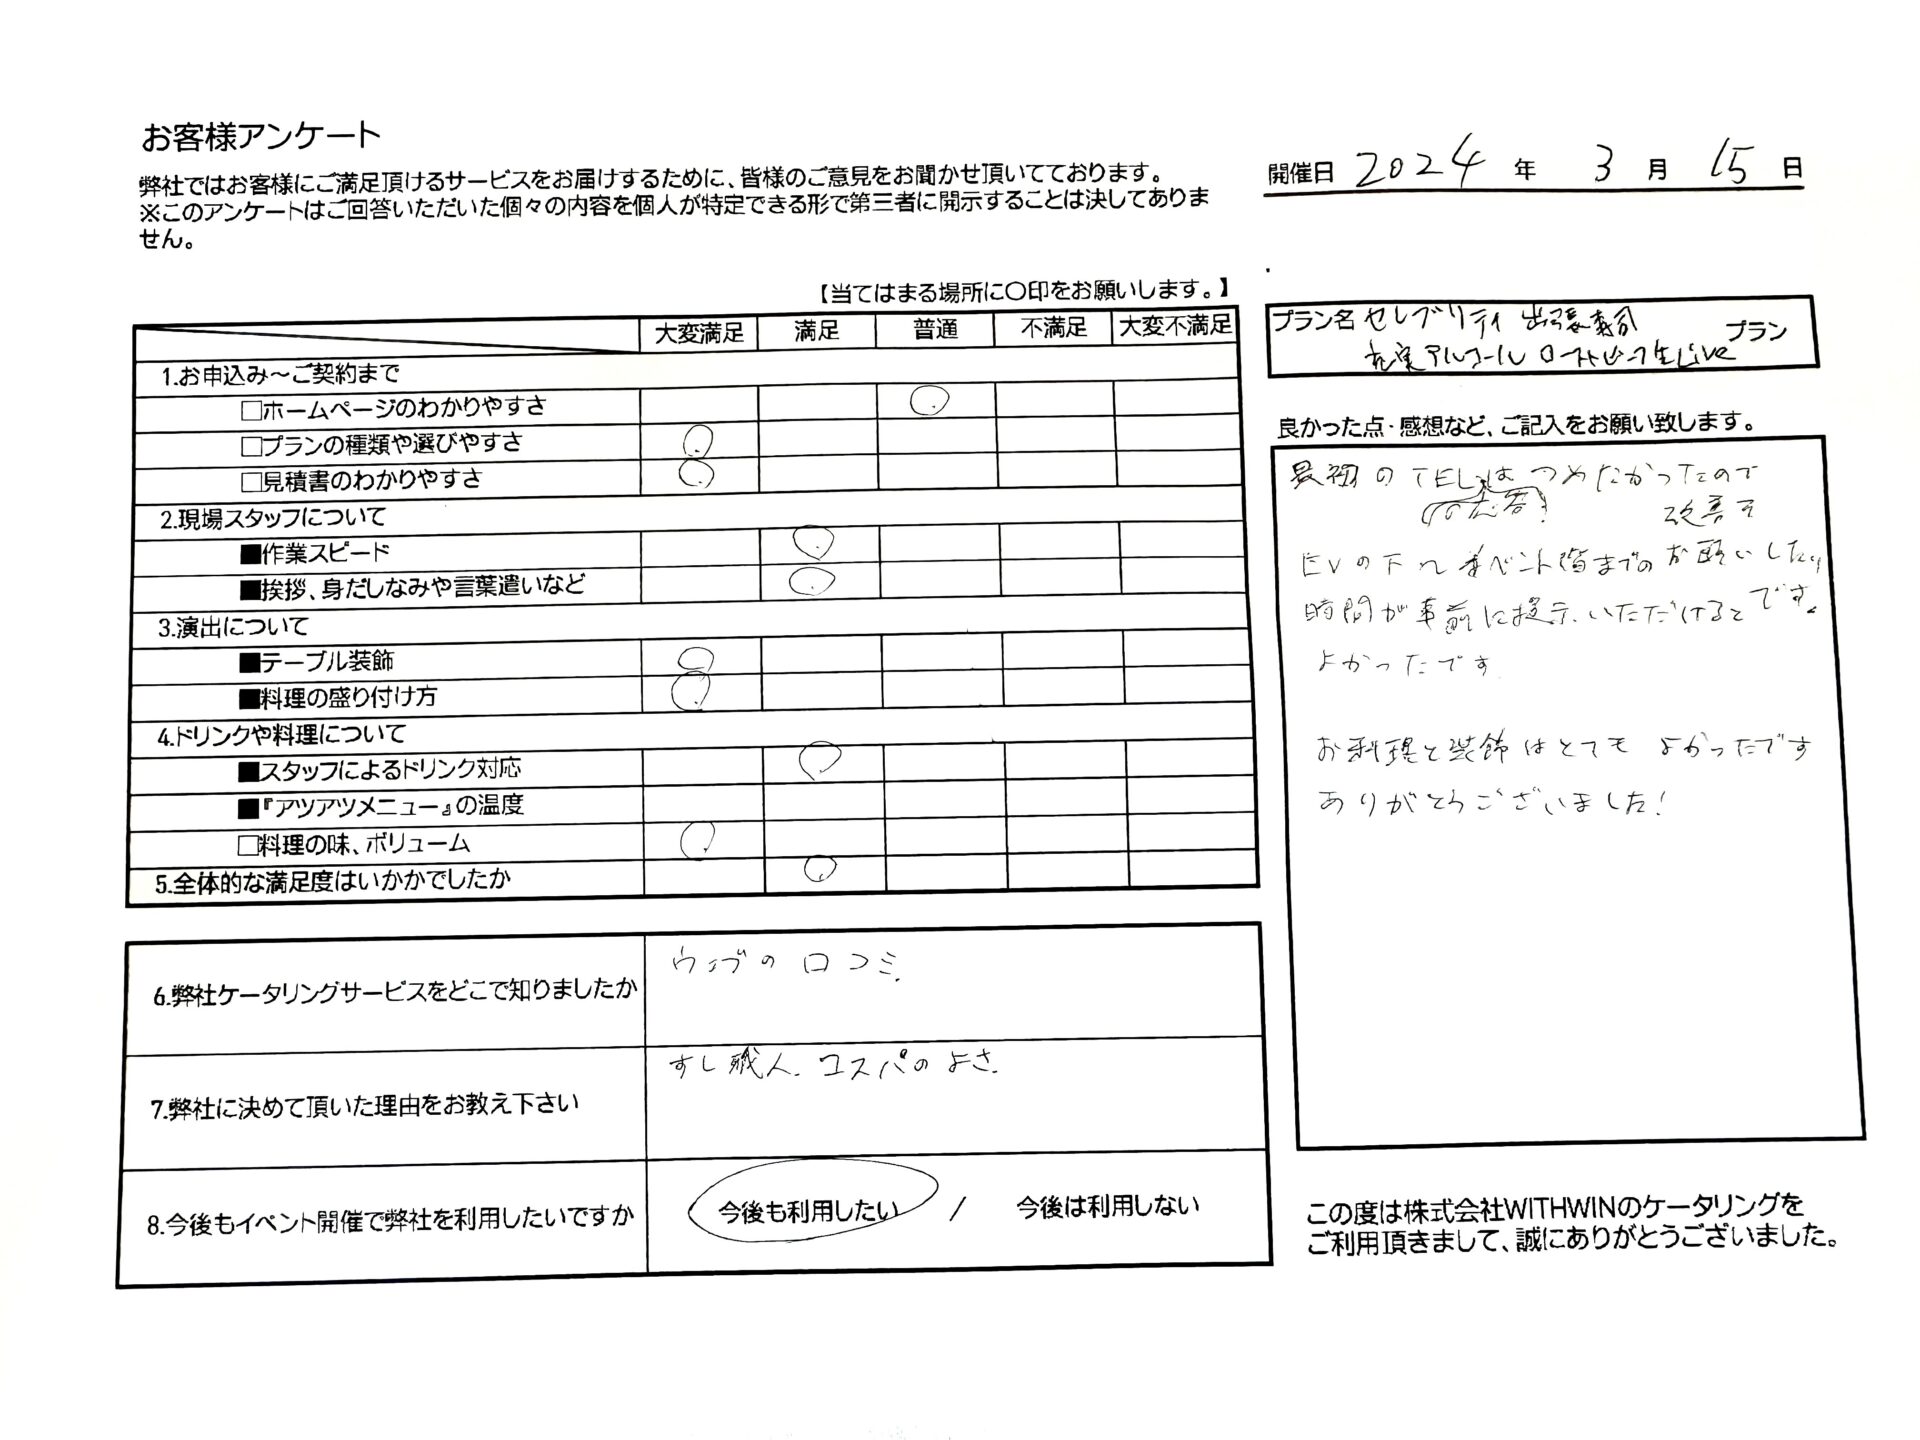 お客様アンケート
弊社ではお客様にご満足頂けるサービスをお届けするために、皆様のご意見をお聞かせ頂いてております。
※このアンケートはご回答いただいた個々の内容を個人が特定できる形で第三者に開示することは決してありま
せん。
開催日 2024 年 3 月 15 日
【当てはまる場所に〇印をお願いします。】
大変満足 満足 普通 不満足 大変不満足
1.お申込み～ご契約まで
□ホームページのわかりやすさ
□プランの種類や選びやすさ
□見積書のわかりやすさ
2.現場スタッフについて
■作業スピード
■挨拶、身だしなみや言葉遣いなど
3.演出について
■テーブル装飾
■料理の盛り付け方
4.ドリンクや料理について
■スタッフによるドリンク対応
■『アツアツメニュー』の温度
□料理の味、ボリューム
5.全体的な満足度はいかかでしたか
6.弊社ケータリングサービスをどこで知りましたか
ウェブの口コミ.
7.弊社に決めて頂いた理由をお教え下さい
すし職人.コスパのよさ.
8.今後もイベント開催で弊社を利用したいですか
今後も利用したい / 今後は利用しない
プラン名 セレブリティ 出張寿司 プラン
充実アルコール ローストビーフ生Live
良かった点・感想など、ご記入をお願い致します。
最初のTELはつめたかったので
の応答 改善を
EVの下 イベント階までの お願いしたい
時間が事前に提示いただけると です。
よかったです
お料理と装飾はとても よかったです
ありがとうございました!
この度は株式会社WITHWINのケータリングを
ご利用頂きまして、誠にありがとうございました。